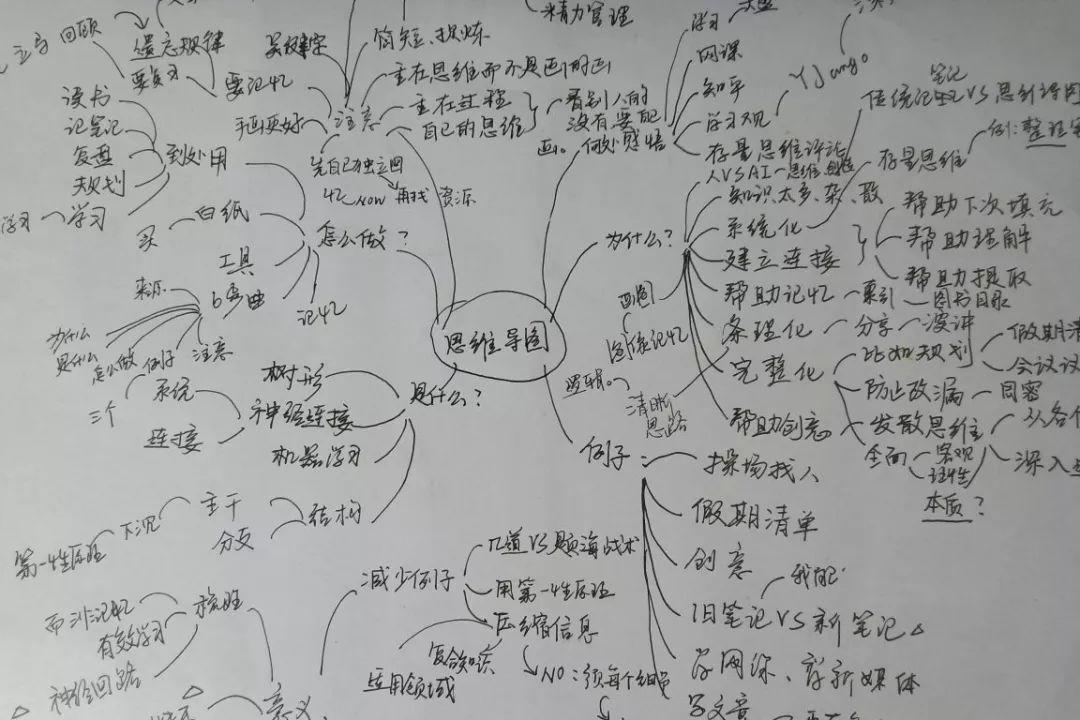 思维导图
为什么？
人VSAI一思维
知识太多、杂、散
系统化
建立连接
帮助下次填充
帮助理解
帮助提取
帮助记忆
索引
图书目录
条理化
分享
演讲
完整化
比如规划
假期清
会议议
防止改漏
周密
发散思维
从各个
深入
全面
客观
理性
本质？
帮助创意
清晰
思路
逻辑。
图像记忆
画图
存量思维
例：整理
传统记忆VS思维导图
笔记
何处感悟
学习
网课
知乎
学习观
YJango
存量思维评论
精力管理
注意
关键字
简短、提炼
主在思维而不是画的画
主在过程
自己的思维
看别人的
没有要配
画。
手画更好
要记忆
遗忘规律
要复习
回顾
先自己独立回
忆 now 再找 资源
怎么做？
到处用
读书
记笔记
复盘
规划
学习
学习
白纸
买
工具
6弯曲
来源
为什么
是什么
怎么做
例子
注意
记忆
是什么？
树形
神经连接
系统
三个
连接
机器学习
结构
主干
下沉
第一性原理
分支
例子
操场找人
假期清单
创意
旧笔记VS新笔记
学网课、学新媒体
写文章
减少例子
几道VS题海战术
用第一性原理
压缩信息
复合知识
应用领域
NO：须每个细节
意义
梳理
而非记忆
有效学习
神经回路